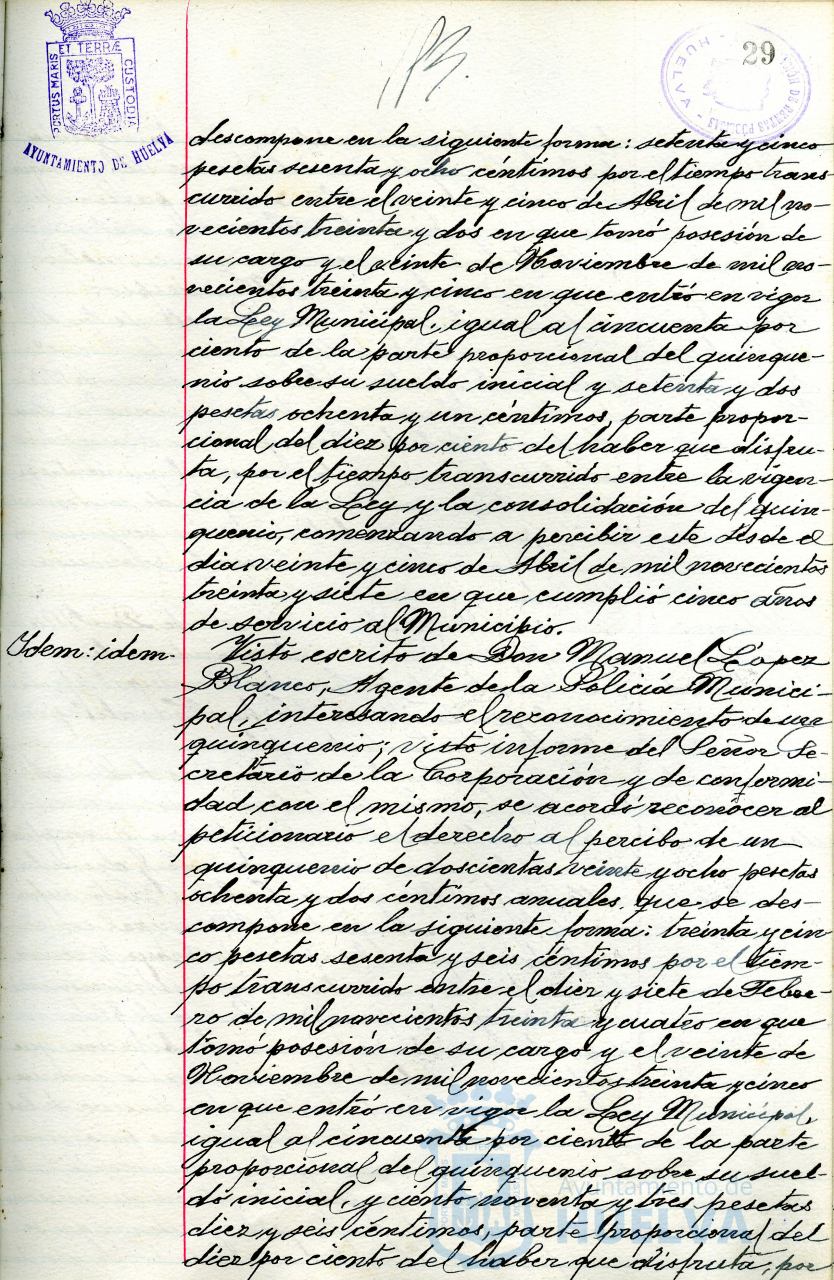 29
PORTUS MARIS ET TERRÆ CUSTODIA
AYUNTAMIENTO DE HUELVA
HUELVA
descompone en la siguiente forma: setenta y cinco
pesetas sesenta y ocho céntimos por el tiempo trans
currido entre el veinte y cinco de Abril de mil no-
vecientos treinta y dos en que tomó posesión de
su cargo y el veinte de Noviembre de mil no-
vecientos treinta y cinco en que entró en vigor
la Ley Municipal, igual al cincuenta por
ciento de la parte proporcional del quinque-
nio sobre su sueldo inicial y setenta y dos
pesetas ochenta y un céntimos, parte propor-
cional del diez por ciento del haber que disfru-
ta, por el tiempo transcurrido entre la vigen-
cia de la Ley y la consolidación del quin-
quenio, comenzando a percibir este desde el
dia veinte y cinco de Abril de mil novecientos
treinta y siete en que cumplió cinco años
de servicio al Municipio.
Idem: idem-
Visto escrito de Don Manuel López
Blanco, Agente de la Policía Munici-
pal, interesando el reconocimiento de un
quinquenio; visto informe del Señor Se-
cretario de la Corporación y de conformi-
dad con el mismo, se acordó reconocer al
peticionario el derecho al percibo de un
quinquenio de doscientas veinte y ocho pesetas
ochenta y dos céntimos anuales, que se des-
compone en la siguiente forma: treinta y cin-
co pesetas sesenta y seis céntimos por el tiem-
po transcurrido entre el diez y siete de Febre-
ro de mil novecientos treinta y cuatro en que
tomó posesión de su cargo y el veinte de
Noviembre de mil novecientos treinta y cinco
en que entró en vigor la Ley Municipal,
igual al cincuenta por ciento de la parte
proporcional del quinquenio sobre su suel-
do inicial, y ciento noventa y tres pesetas
diez y seis céntimos, parte proporcional del
diez por ciento del haber que disfruta, por
Ayuntamiento de
HUELVA